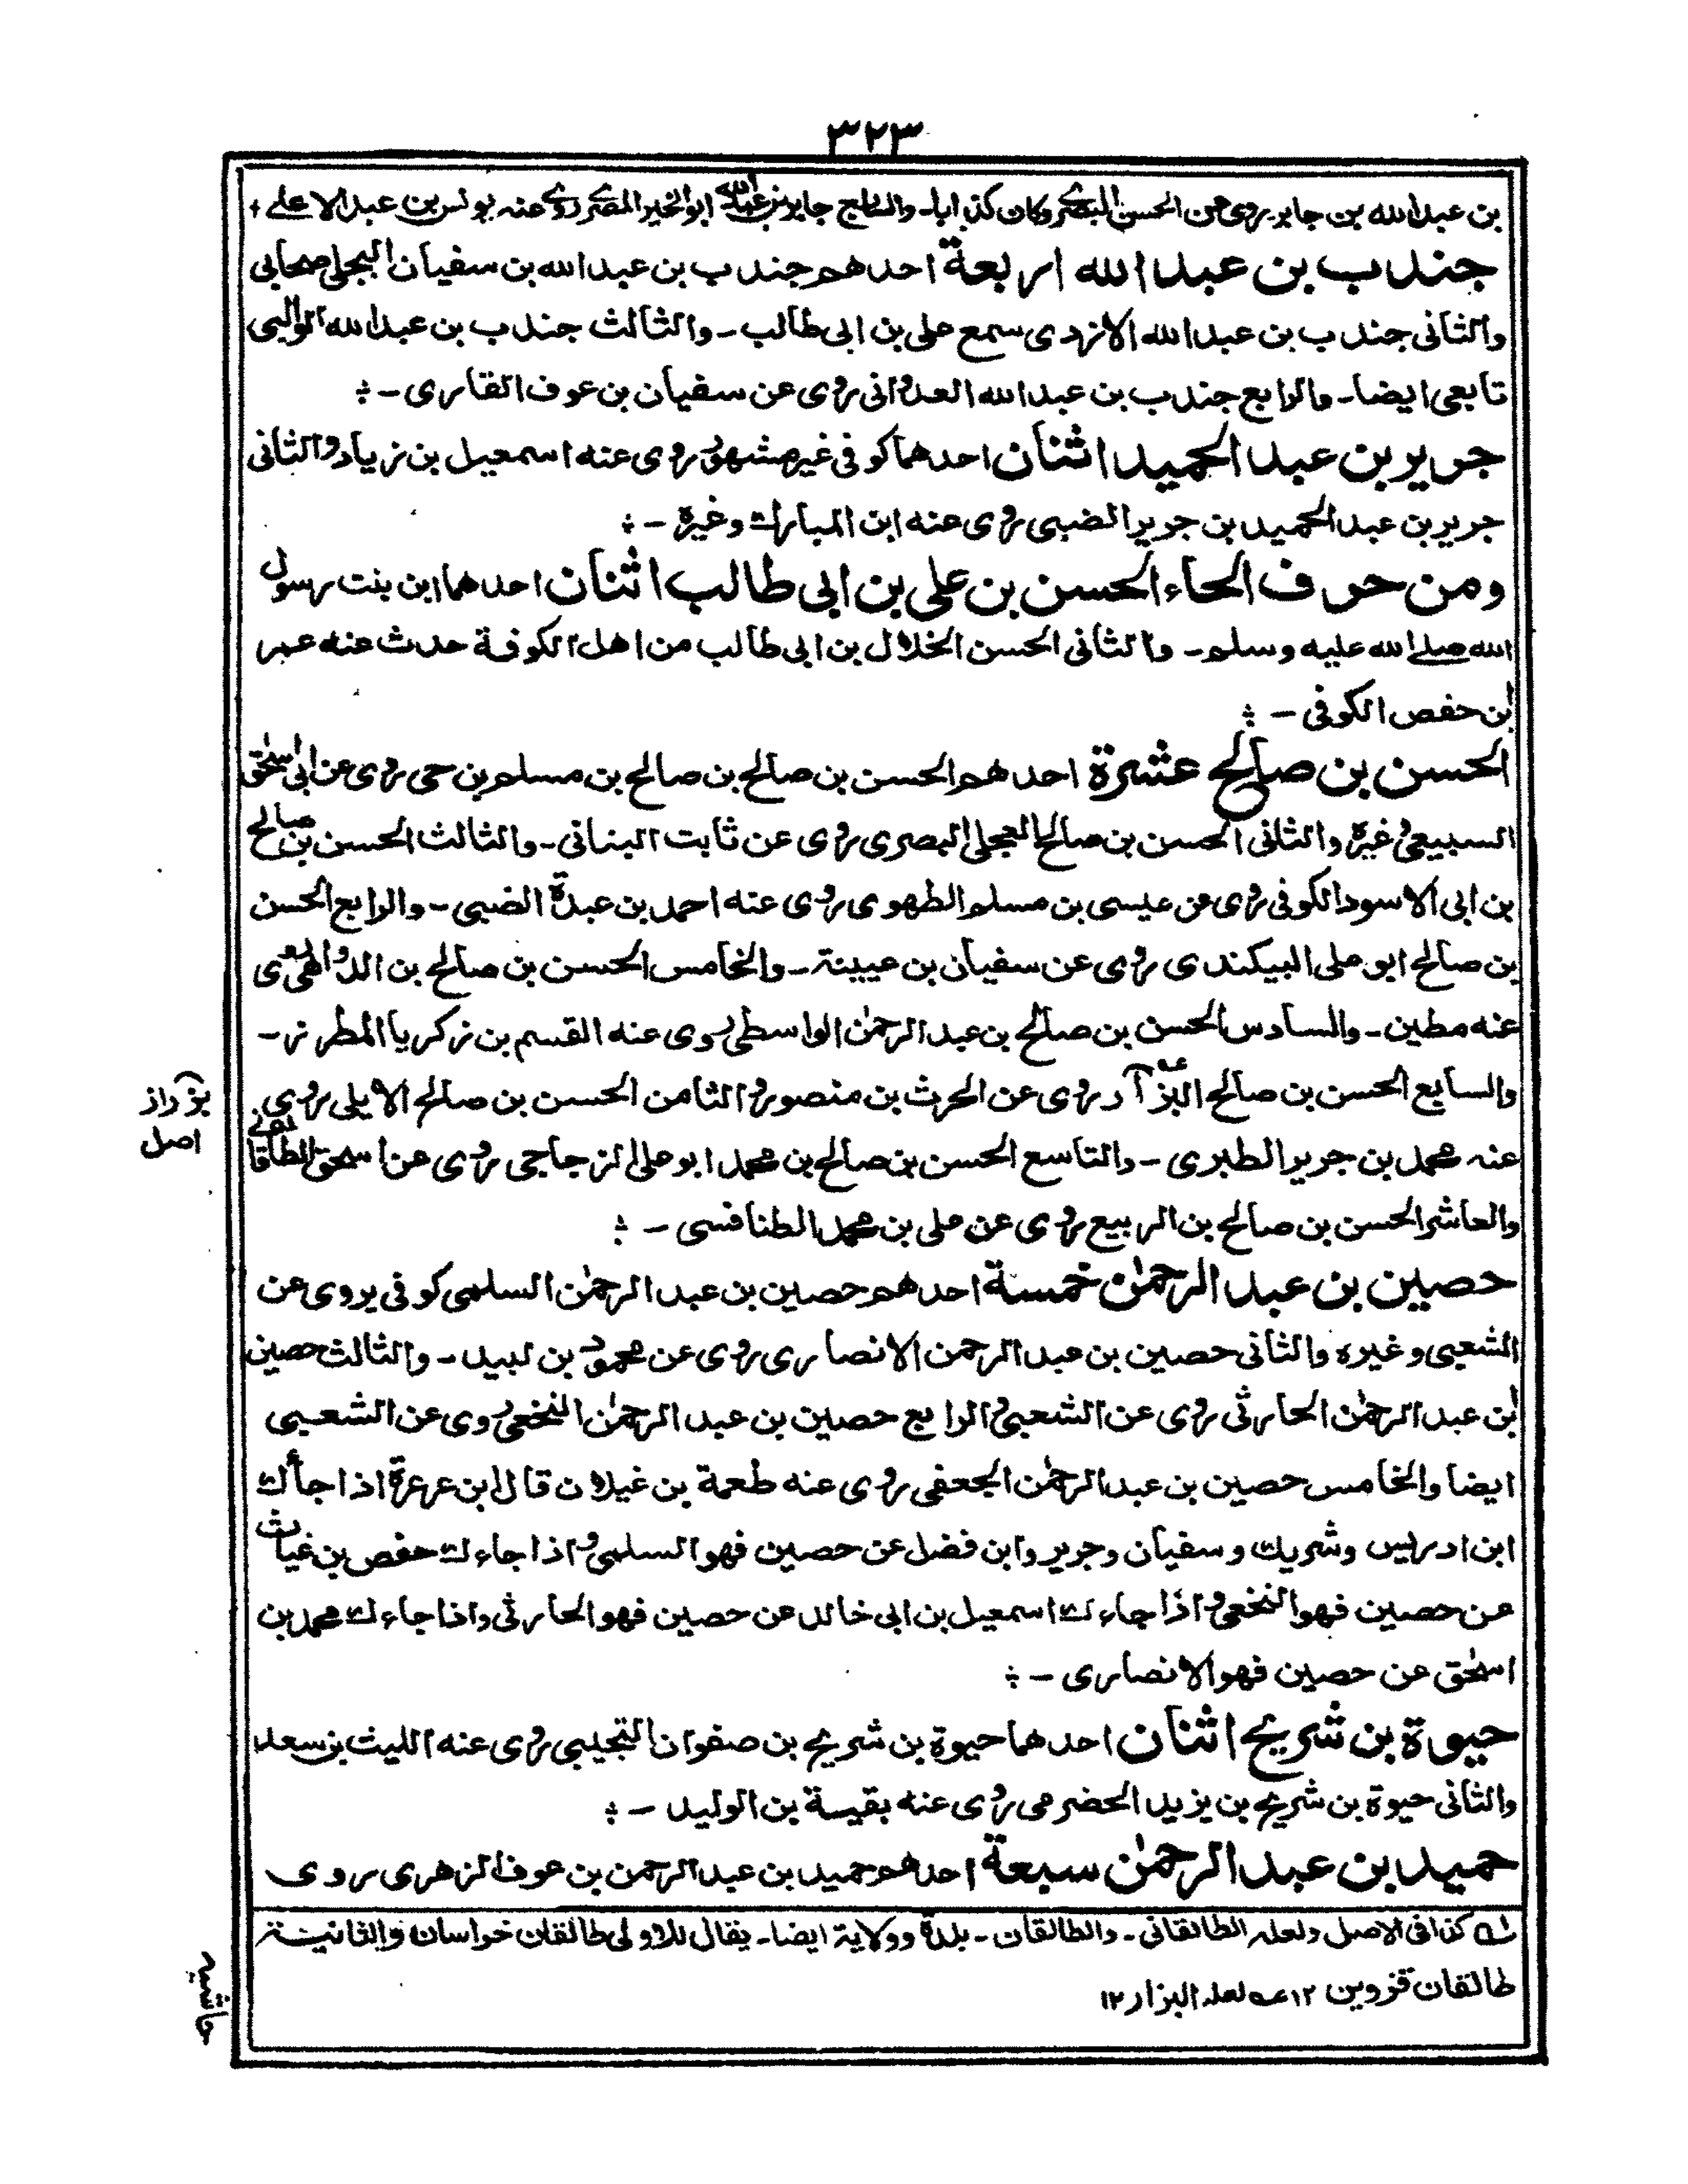 ٣٢٣
بن عبد الله بن جابر يروى عن الحسن البصرے وكان كذابا۔ والسابع جابر بن عبد الله ابو الخير المصرے روے عنه يونس بن عبد الاعلے ؞
جندب بن عبد الله اربعة احدهم جندب بن عبد الله بن سفيان البجلى صحابى
والثانى جندب بن عبد الله الازدى سمع على بن ابى طالب ۔ والثالث جندب بن عبد الله الوالبى
تابعى ايضا۔ والرابع جندب بن عبد الله العدوانى روى عن سفيان بن عوف القارى ۔ ؞
جرير بن عبد الحميد اثنان احدهما كوفى غير مشهور روى عنه اسمعيل بن زياد والثانى
جرير بن عبد الحميد بن جرير الضبى روى عنه ابن المبارك وغيره ۔ ؞
ومن حرف الحاء الحسن بن على بن ابى طالب اثنان احدهما ابن بنت رسول
الله صلے الله عليه وسلم ۔ والثانى الحسن الخلال بن ابى طالب من اهل الكوفة حدث عنه عمر
ابن حفص الكوفى ۔ ؞
الحسن بن صالح عشرة احدهم الحسن بن صالح بن صالح بن مسلم بن حى روى عن ابى اسحٰق
السبيعى وغيره والثانى الحسن بن صالح العجلى البصرى روى عن ثابت البنانى ۔ والثالث الحسن بن صالح
بن ابى الاسود الكوفى روى عن عيسى بن مسلم الطهوى روى عنه احمد بن عبدة الضبى ۔ والرابع الحسن
بن صالح ابو على البيكندى روى عن سفيان بن عيينة ۔ والخامس الحسن بن صالح بن
عنه مطين ۔ والسادس الحسن بن صالح بن عبد الرحمٰن الواسطى روى عنه القسم بن زكريا المطرز ۔
والسابع الحسن بن صالح البزآر روى عن الحرث بن منصور والثامن الحسن بن صالح الايلى روى
بزدراز
اصل
عنه محمد بن جرير الطبرى ۔ والتاسع الحسن بن صالح بن محمد ابو على الزجاجى روى عن اسحق الطاقانى
والعاشر الحسن بن صالح بن الربيع روى عن على بن محمد الطنافسى ۔ ؞
حصين بن عبد الرحمٰن خمسة احدهم حصين بن عبد الرحمٰن السلمى كوفى يروى عن
الشعبى وغيره والثانى حصين بن عبد الرحمن الانصارى روى عن محمود بن لبيد ۔ والثالث حصين
ابن عبد الرحمٰن الحارثى روى عن الشعبى والرابع حصين بن عبد الرحمٰن النخعى روى عن الشعبى
ايضا والخامس حصين بن عبد الرحمٰن الجعفى روى عنه طعمة بن غيلان قال ابن عرعرة اذا جأك
ابن ادريس وشريك وسفيان وجرير وابن فضل عن حصين فهو السلمى واذا جاءك حفص بن غياث
عن حصين فهو النخعى واذا جاءك اسمعيل بن ابى خالد عن حصين فهو الحارثى واذا جاءك محمد بن
اسحٰق عن حصين فهو الانصارى ۔ ؞
حيوة بن شريح اثنان احدهما حيوة بن شريح بن صفوان التجيبى روى عنه الليث بن سعد
والثانى حيوة بن شريح بن يزيد الحضرمى روى عنه بقيسة بن الوليد ۔ ؞
حميد بن عبد الرحمٰن سبعة احدهم حميد بن عبد الرحمن بن عوف الزهرى روى
كذا فى الاصل ولعله الطالقانى ۔ والطالقان ۔ بلدة وولاية ايضا۔ يقال للاولى طالقان خراسان والثانية
طالقان قزوين ١٢ عه لعله البزار ١٢
حاشيه